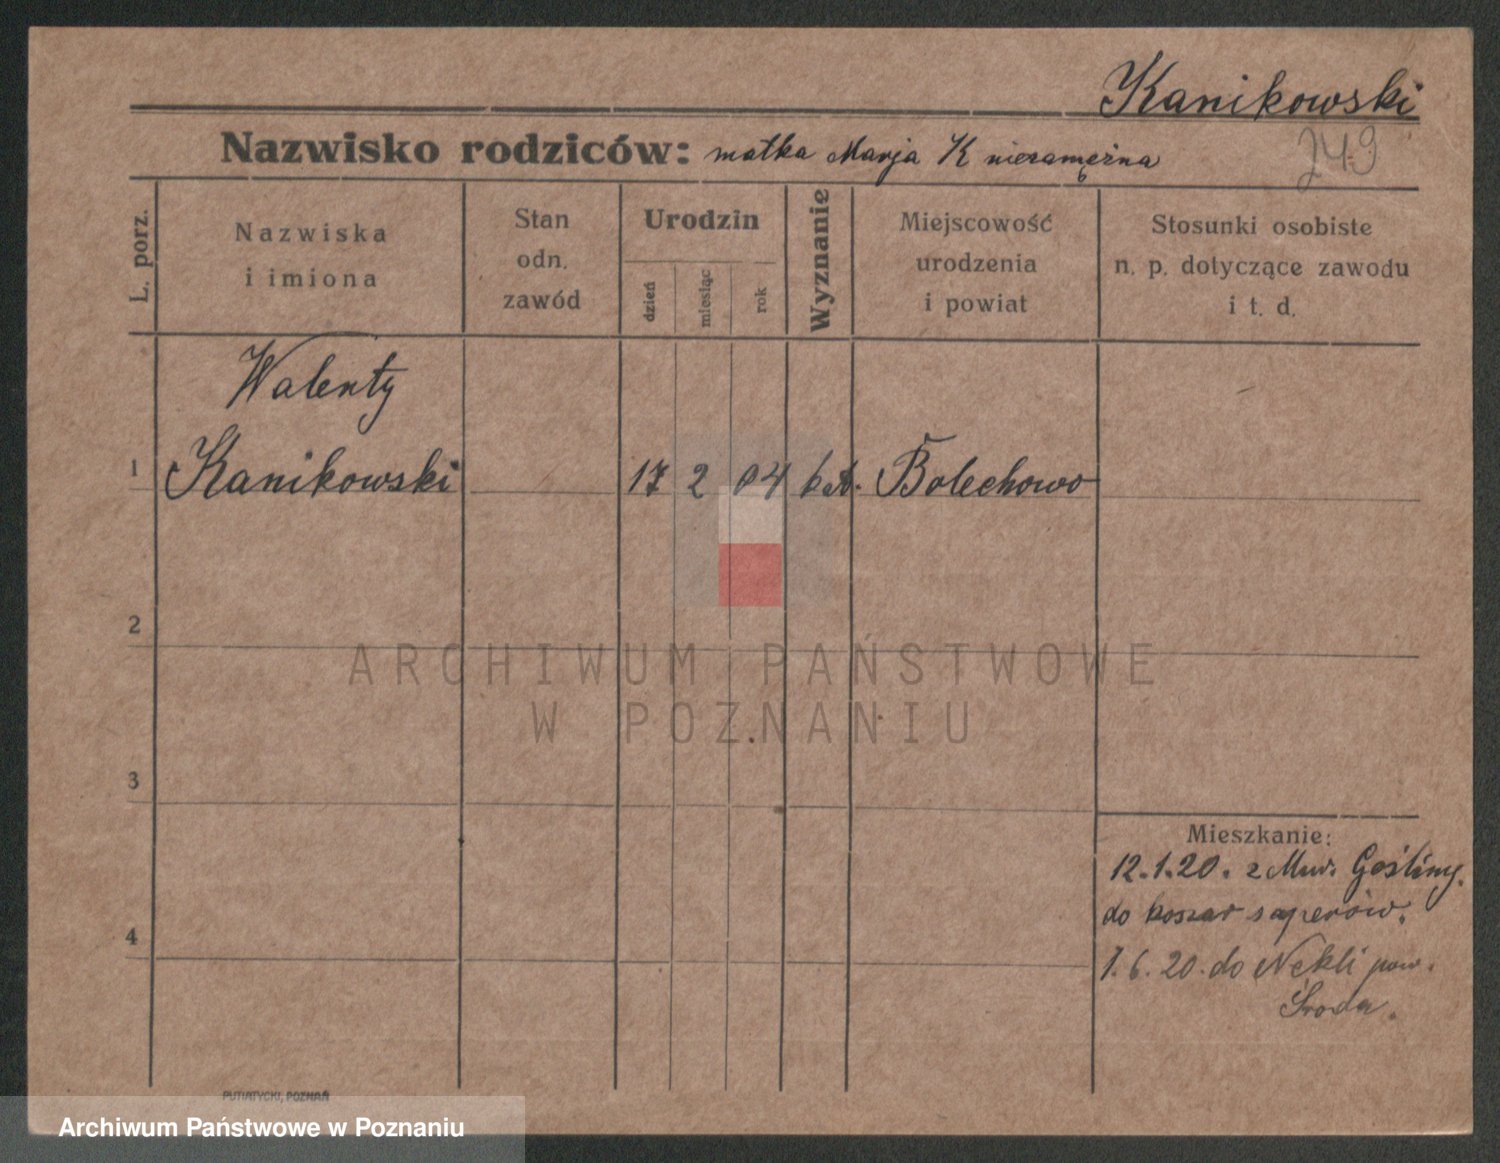 Kanikowski
249
Nazwisko rodziców: matka Marja K niezamężna
L. porz.
Nazwiska
i imiona
Stan
odn.
zawód
Urodzin
dzień
miesiąc
rok
Wyznanie
Miejscowość
urodzenia
i powiat
Stosunki osobiste
n. p. dotyczące zawodu
i t. d.
Walenty
1 Kanikowski 17 2 04 kat. Bolechowo
2
ARCHIWUM PAŃSTWOWE
W POZNANIU
3
Mieszkanie:
12.1.20. z Mur. Gośliny.
do koszar saperów.
4
1.6.20. do Nekli pow.
Środa.
PUTIATYCKI, POZNAŃ
Archiwum Państwowe w Poznaniu